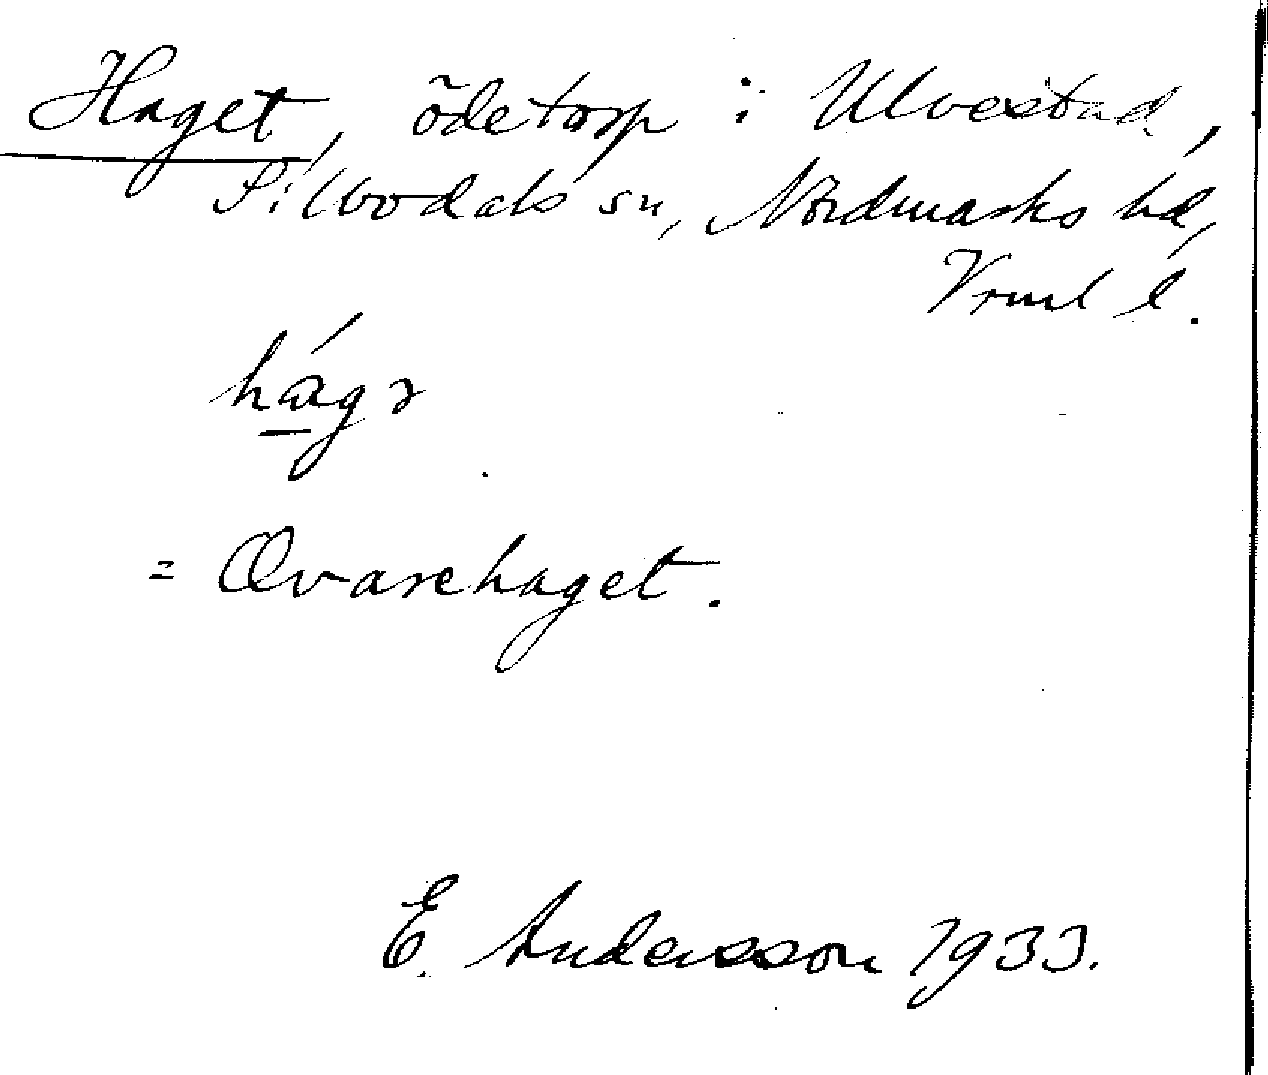 Haget, ödetorp i Ulvestad,
Silbodals sn, Nordmarks hd,
Vrml l.
= Qvarehaget.
E. Andersson 1933.